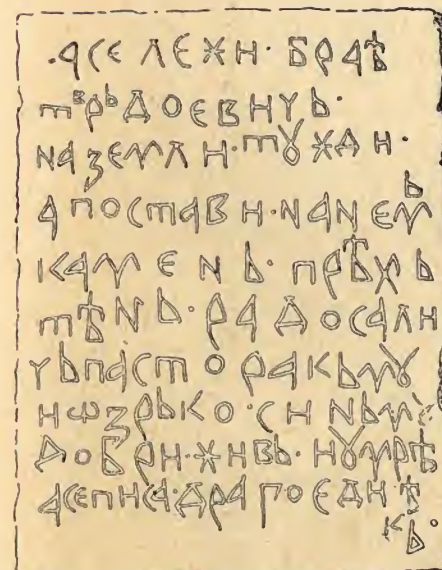 ·асележи· браѣ
тврьдоевичь·
наземли·тꙋжди·
апостави·нанемь
камень·прѣхь
тѣнь·радосали
чьпасторакьмꙋ
иѡзрько·синьм
добри·живь·иꙋмрѣ
асеписа·драгоедиѣ
кь·